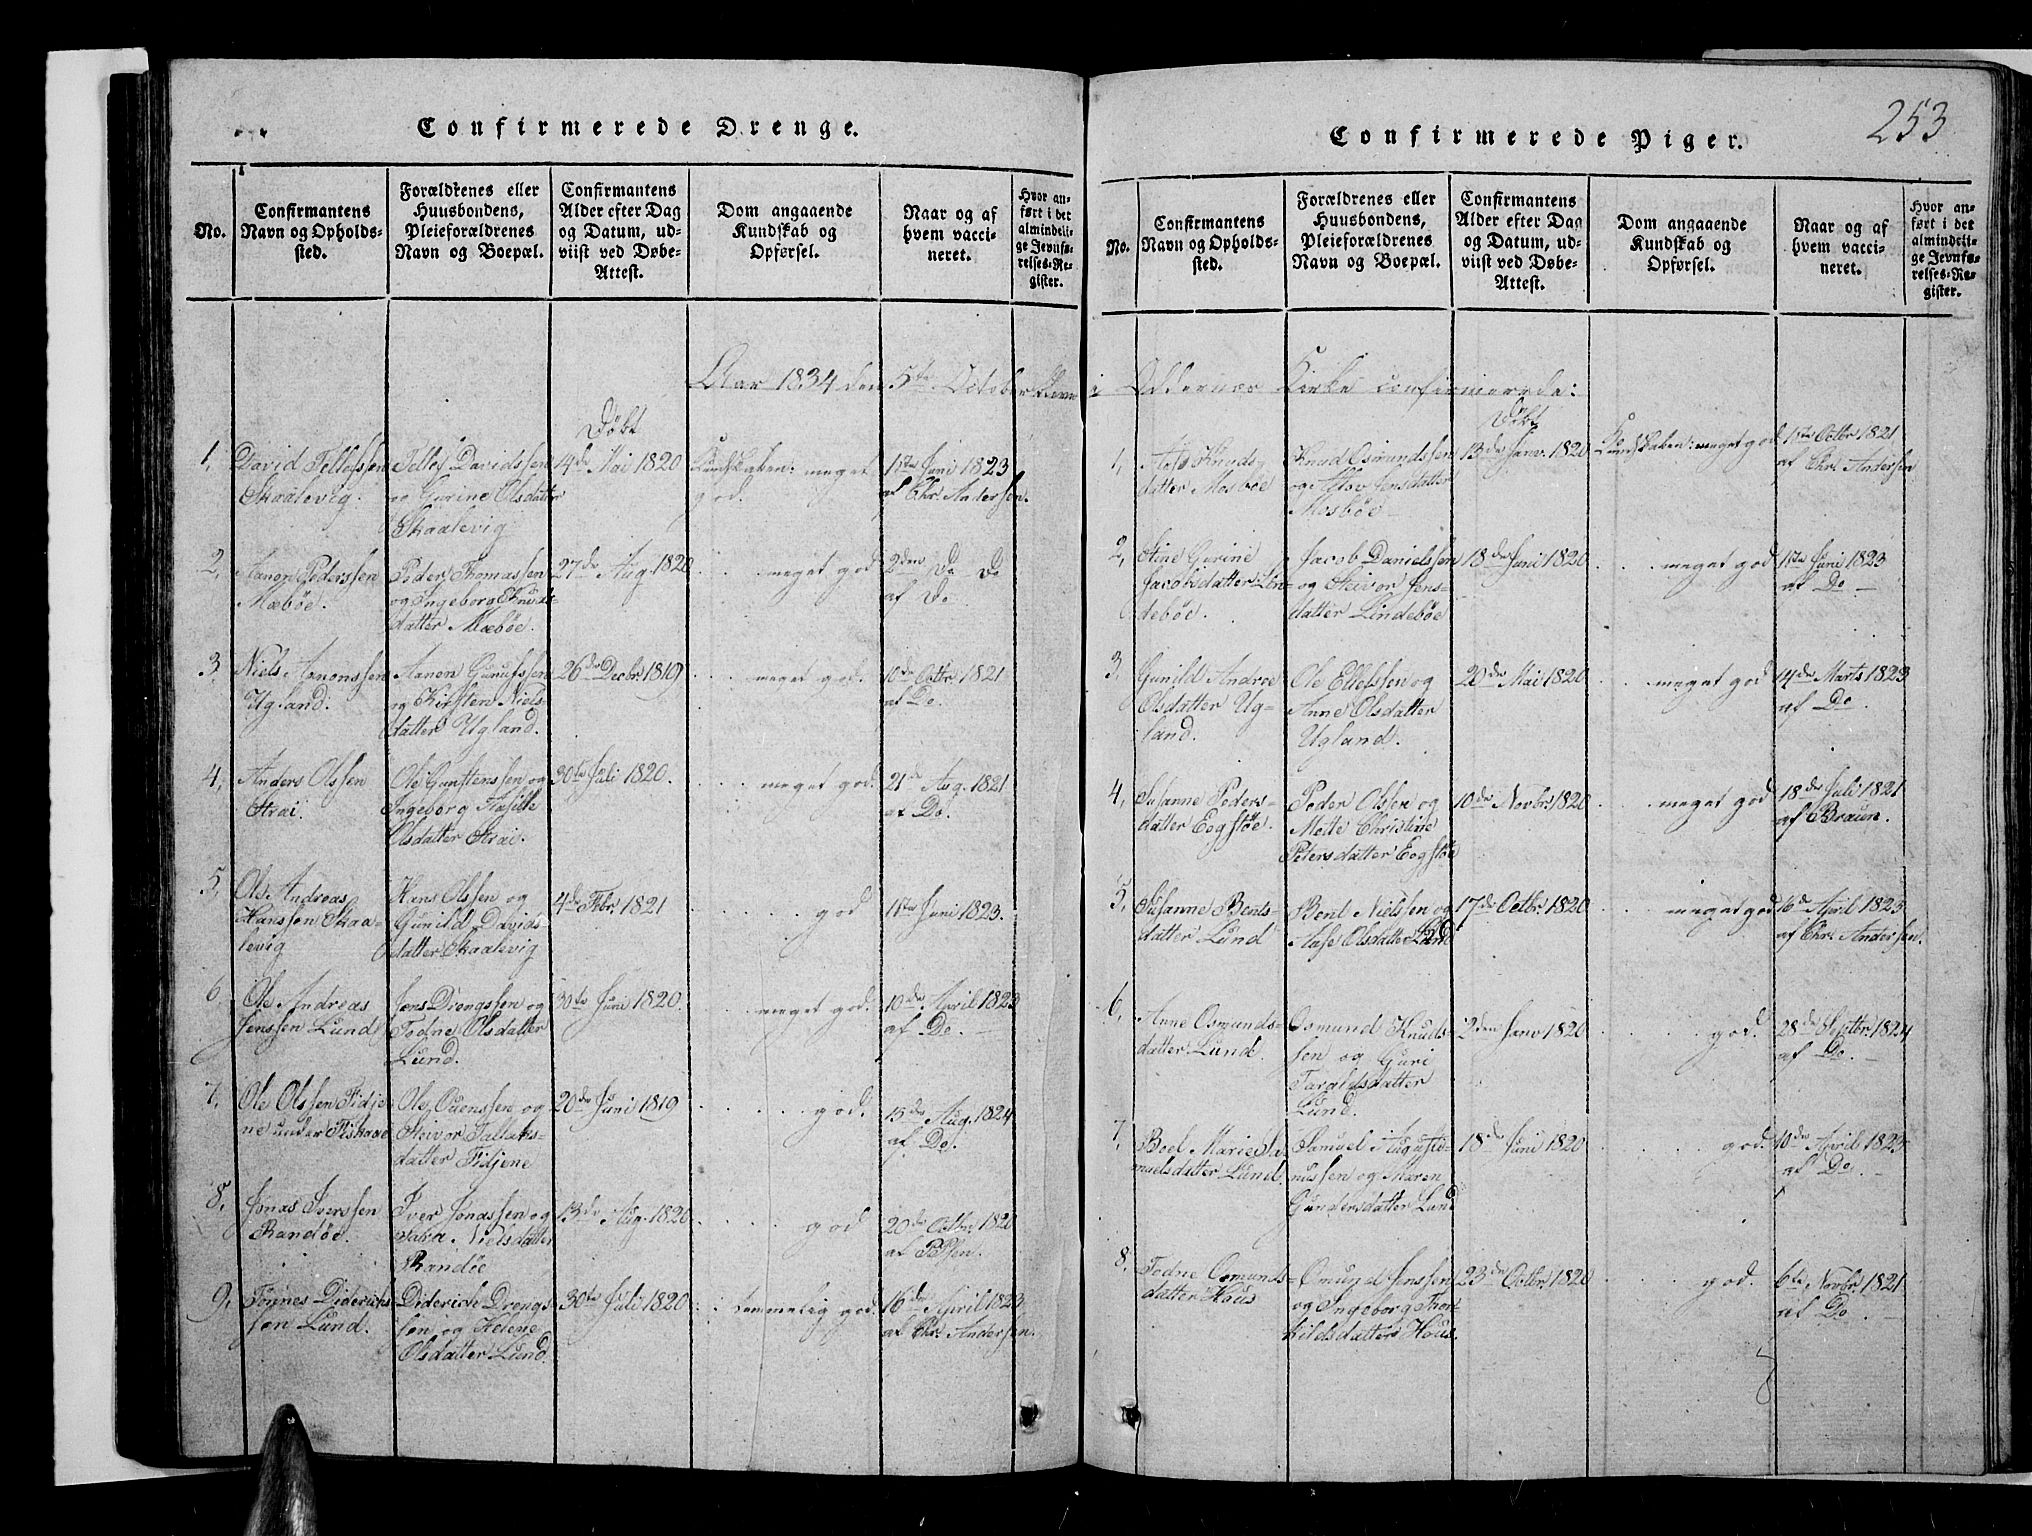 Confirmerede Drenge.
No.
Confirmantens
Navn og Opholds-
sted.
Forældrenes eller
Huusbondens,
Pleieforældrenes
Navn og Boepæl.
Confirmantens
Alder efter Dag
og Datum, ud-
viist ved Døbe-
Attest.
Dom angaaende
Kundskab og
Opførsel.
Naar og af
hvem vacci-
neret.
Hvor an-
ført i det
almindeli-
ge Jevnfø-
relses-Re-
gister.
Aar 1834 den 5te October blev
Døbt
1, David Tellefssen
Skaalevig.
Tellef Davidssen
og Gurine Olsdatter
Skaalevig
14de Mai 1820
Kundskaben: meget
god.
11te Juni 1823
af Chr. Andersen.
2, Aanon Pederssen
Mæbøe.
Peder Thomassen
og Ingeborg Knuds-
datter Mæbøe.
27de Aug. 1820
meget god
2den Do Do
af Do
3 Niels Aanonssen
Ugland.
Aanon Gunufssen
og Kirsten Niels-
datter Ugland.
26de Decbr 1819
meget god.
10de Octbr 1821
af Do.
4, Anders Olssen
Strai.
Ole Gunstenssen og
Ingeborg
Olsdatter Strai.
30te Juli 1820.
meget god.
21de Aug. 1821
af Do.
5, Ole Andreas
Hanssen Skaa-
levig
Hans Olssen og
Gunild Davids-
datter Skaalevig
4de Febr. 1821
god
11te Juni 1823.
6 Ole Andreas
Jenssen Lund
Jens Drengssen og
Todne Olsdatter
Lund.
30te Juni 1820.
meget god.
10de April 1823
af Do.
7, Ole Olssen Fidje
ne under
Ole Ouenssen og
Steivor Tallaks-
datter Fidjene
20de Juni 1819
god.
15de Aug. 1824
af Do.
8, Jonas Iverssen
Randøe.
Iver Jonassen og
Nielsdatter
Randøe
13de Aug. 1820
god
20de Octbr 1820
af
9, Tønnes Diderichs
sen Lund.
Diderich Drengs-
sen og Helene
Olsdatter Lund
30te Juli 1820
temmelig god.
16de April 1823
af Chr. Andersen.
253
Confirmerede Piger.
No.
Confirmantens
Navn og Opholds-
sted.
Forældrenes eller
Huusbondens,
Pleieforældrenes
Navn og Boepæl.
Confirmantens
Alder efter Dag
og Datum, ud-
viist ved Døbe-
Attest.
Dom angaaende
Kundskab og
Opførsel.
Naar og af
hvem vacci-
neret.
Hvor an-
ført i det
almindeli-
ge Jevnfø-
relses-Re-
gister.
i Oddernæs Kirke confirmerede:
Døbt
1, Knuds-
datter Mosbøe
Knud Osmundssen
og Jensdatter
Mosbøe
13de Janv. 1820
Kundskaben: meget god
11te Octbr 1821
af Chr. Andersen
2, Stine Gurine
Jacobsdatter Lin-
debøe.
Jacob Danielssen
og Steivor Jens-
datter Lindebøe
18de Juni 1820
meget god
11te Juni 1823
af Do.
3 Gunild Andrea
Olsdatter Ug-
land.
Ole Ellefssen og
Anne Olsdatter
Ugland.
20de Mai 1820
meget god
14de Marts 1823
af Do
4, Susanne Peders-
datter Eegstøe.
Peder Olssen og
Mette Christine
Petersdatter Eegstøe
10de Novbr. 1820
meget god
18de Juli 1821
af Braun.
5, Susanne Bents-
datter Lund
Bent Nielssen og
Aase Olsdatter Lund
17de Octbr. 1820
meget god
16de April 1823
af Chr. Andersen.
6, Anne Osmunds-
datter Lund.
Osmund Knuds-
sen og Guri
Taraldsdatter
Lund.
2den Janv 1820
god.
28de Septbr. 1824
af Do.
7, Boel Marie Sa
muelsdatter Lund.
Samuel Augusti-
nussen og Maren
Gundersdatter Lund
18de Juni 1820
god.
10de April 1823
af Do.
8, Todne Osmunds-
datter Haus
Omund Jenssen
og Ingeborg Thor-
kildsdatter Haus.
23de Octbr 1820
god.
6te Novbr 1821
af Do.